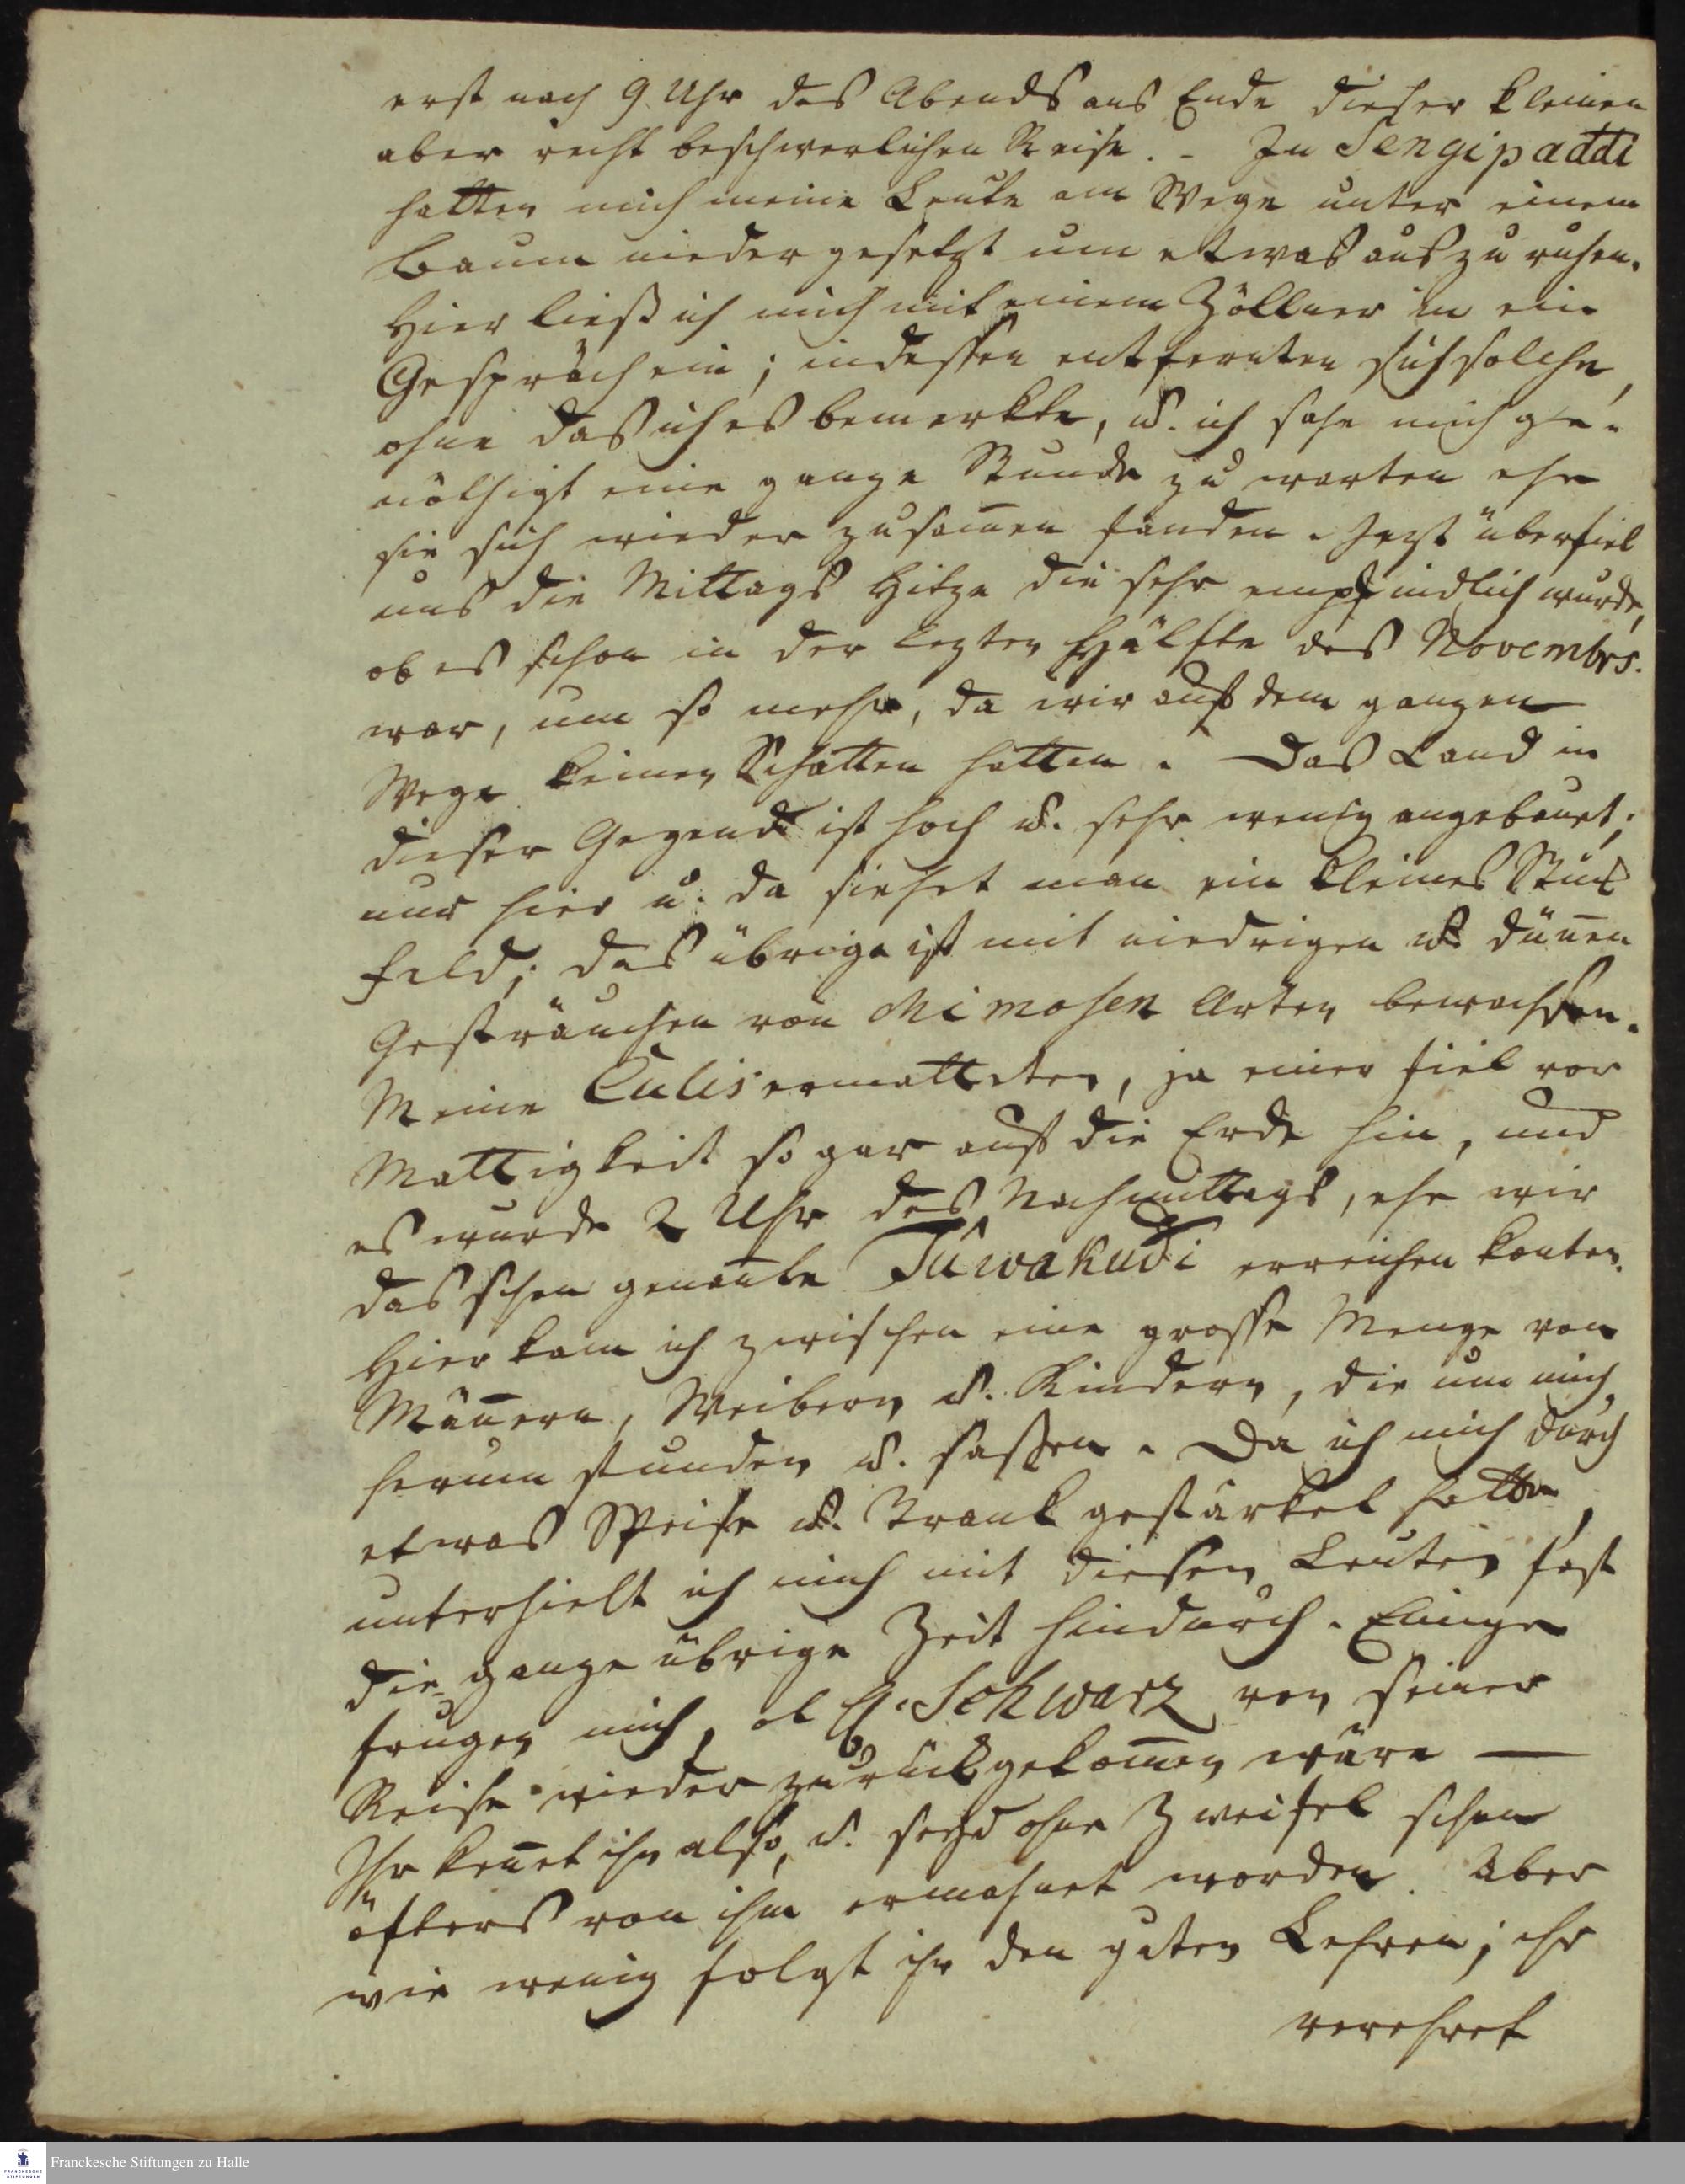 erst nach 9 Uhr des Abends ans Ende dieser kleinen
aber recht beschwerlichen Reise. - In Sengipaddi
hatten mich meine Leute am Wege unter einem
Baum nieder gesetzt um etwas aus zu ruhen.
Hier ließ ich mich mit einem Zöllner in ein
Gespräch ein; indessen entfernten sich solche,
ohne das ich es bemerkte, u. ich sahe mich ge-
nöthigt eine ganze Stunde zu warten ehe
sie sich wieder zusam̅en fanden. Jezt überfiel
uns die Mittags Hitze die sehr empfindlich wurde,
ob es schon in der lezten Hälfte des Novembrs.
war, um so mehr, da wir auf dem ganzen
Wege keinen Schatten hatten. Das Land in
dieser Gegend ist hoch u. sehr wenig angebauet;
nur hier u. da siehet man ein kleines Stük
Feld; das übrige ist mit niedrigen u. dün̅en
Gesträuchen von Mimosen Arten bewachsen.
Meine Culis ermatteten, ja einer fiel vor
Mattigkeit so gar auf die Erde hin, und
es wurde 2 Uhr des Nachmittags, ehe wir
das schon genan̅te Tuwakudi erreichen konten.
Hier kam ich zwischen eine grosse Menge von
Män̅ern, Weibern u. Kindern, die um mich
herum stunden u. sassen. Da ich mich durch
etwas Speise u. Trank gestärket hatte,
unterhielt ich mich mit diesen Leuten fast
die ganze übrige Zeit hindurch. Einige
frugen mich, ob H. Schwarz von seiner
Reise wieder zurükgekom̅en wäre —
Ihr ken̅et ihn also, u. seyd ohne Zweifel schon
öfters von ihm ermahnet worden. Aber
wie wenig folgt ihr den guten Lehren; ihr
verehret
Franckesche Stiftungen zu Halle
FRANCKESCHE
STIFTUNGEN